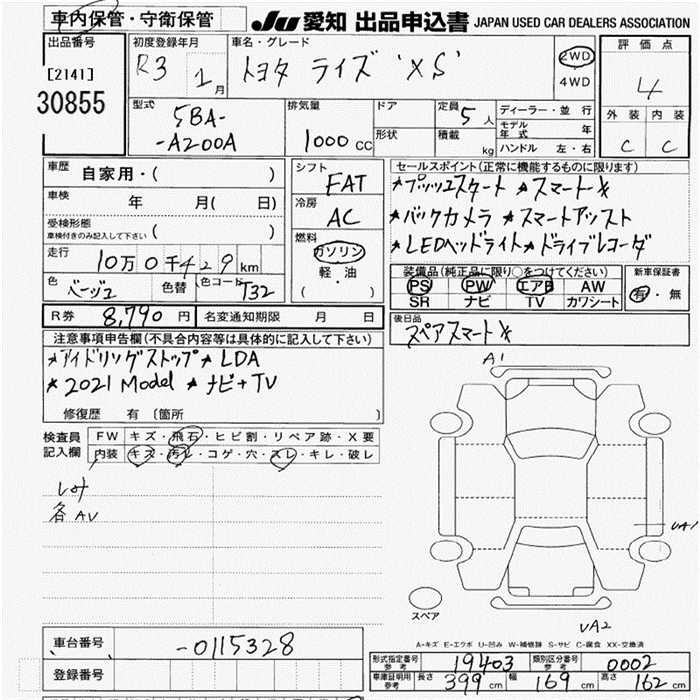 車内保管・守衛保管
JU 愛知 出品申込書 JAPAN USED CAR DEALERS ASSOCIATION
出品番号
[2141]
30855
初度登録年月
R3 2月
車名・グレード
トヨタ ライズ 'XS'
2WD
4WD
評価点
4
外装 内装
C C
型式
5BA-
-A200A
排気量
1000 CC
ドア
形状
定員
5人
積載
kg
ディーラー・並行
モデル年式 年
ハンドル 左・右
車歴
自家用・( )
車検
年 月( 日)
受検形態
車検付きのみ記入して下さい ( )
走行
10万0千429km
色 ベージュ 色替 色コード T32
シフト
FAT
冷房
AC
燃料
ガソリン
軽・油
( )
セールスポイント(正常に機能するものに限ります)
*プッシュスタート *スマートキー
*バックカメラ *スマートアシスト
*LEDヘッドライト*ドライブレコーダ
装備品(純正品に限り○をつけてください)
PS PW エアB AW
SR ナビ TV カワシート
新車保証書
有・無
R券 8,790円 名変通知期限 月 日
後日品
スペアスマートキー
注意事項申告欄(不具合内容等は具体的に記入して下さい)
*アイドリングストップ*LDA
*2021 Model *ナビ+TV
修復歴 有 〔箇所 〕
検査員
記入欄
FW キズ・飛石・ヒビ割・リペア跡・X要
内装 キズ・汚レ・コゲ・穴・スレ・キレ・破レ
各AU
A1
UA1
スペア
UA2
A-キズ E-エクボ U-凹み W-補修跡 S-サビ C-腐食 XX-交換済
車台番号 -0115328
登録番号
形式指定番号
参考
19403
類別区分番号
参考
0002
車庫証明用
参考
長さ 399cm 幅 169cm 高さ 162cm